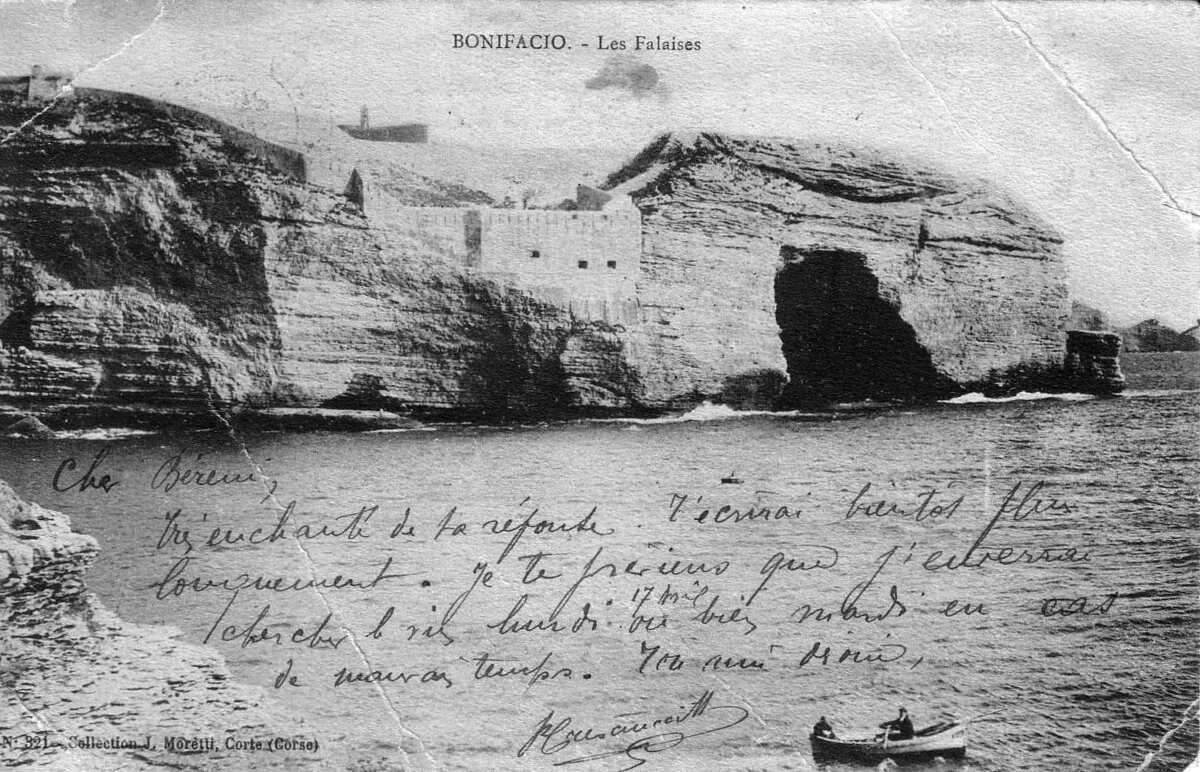 BONIFACIO. - Les Falaises
Cher
Très enchanté de ta réponse. T'écrirai bientôt plus
longuement. Je te préviens que j'enverrai
chercher le vin lundi 17 ou bien mardi en cas
de mauvais temps. Ton ami
Nº 321 - Collection J. Moretti, Corte (Corse)